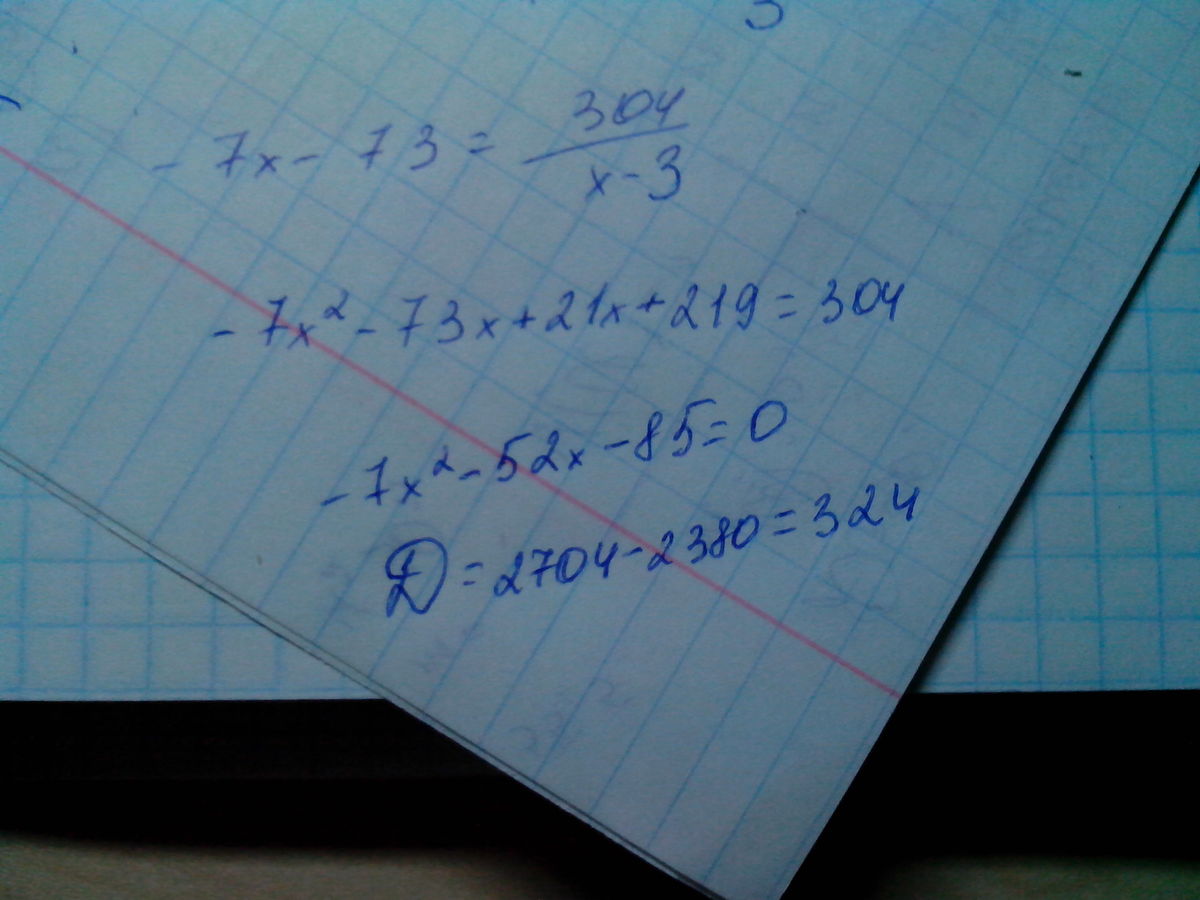 - 7x - 73 = 304/(x-3)
- 7x² - 73x + 21x + 219 = 304
- 7x² - 52x - 85 = 0
D = 2704 - 2380 = 324